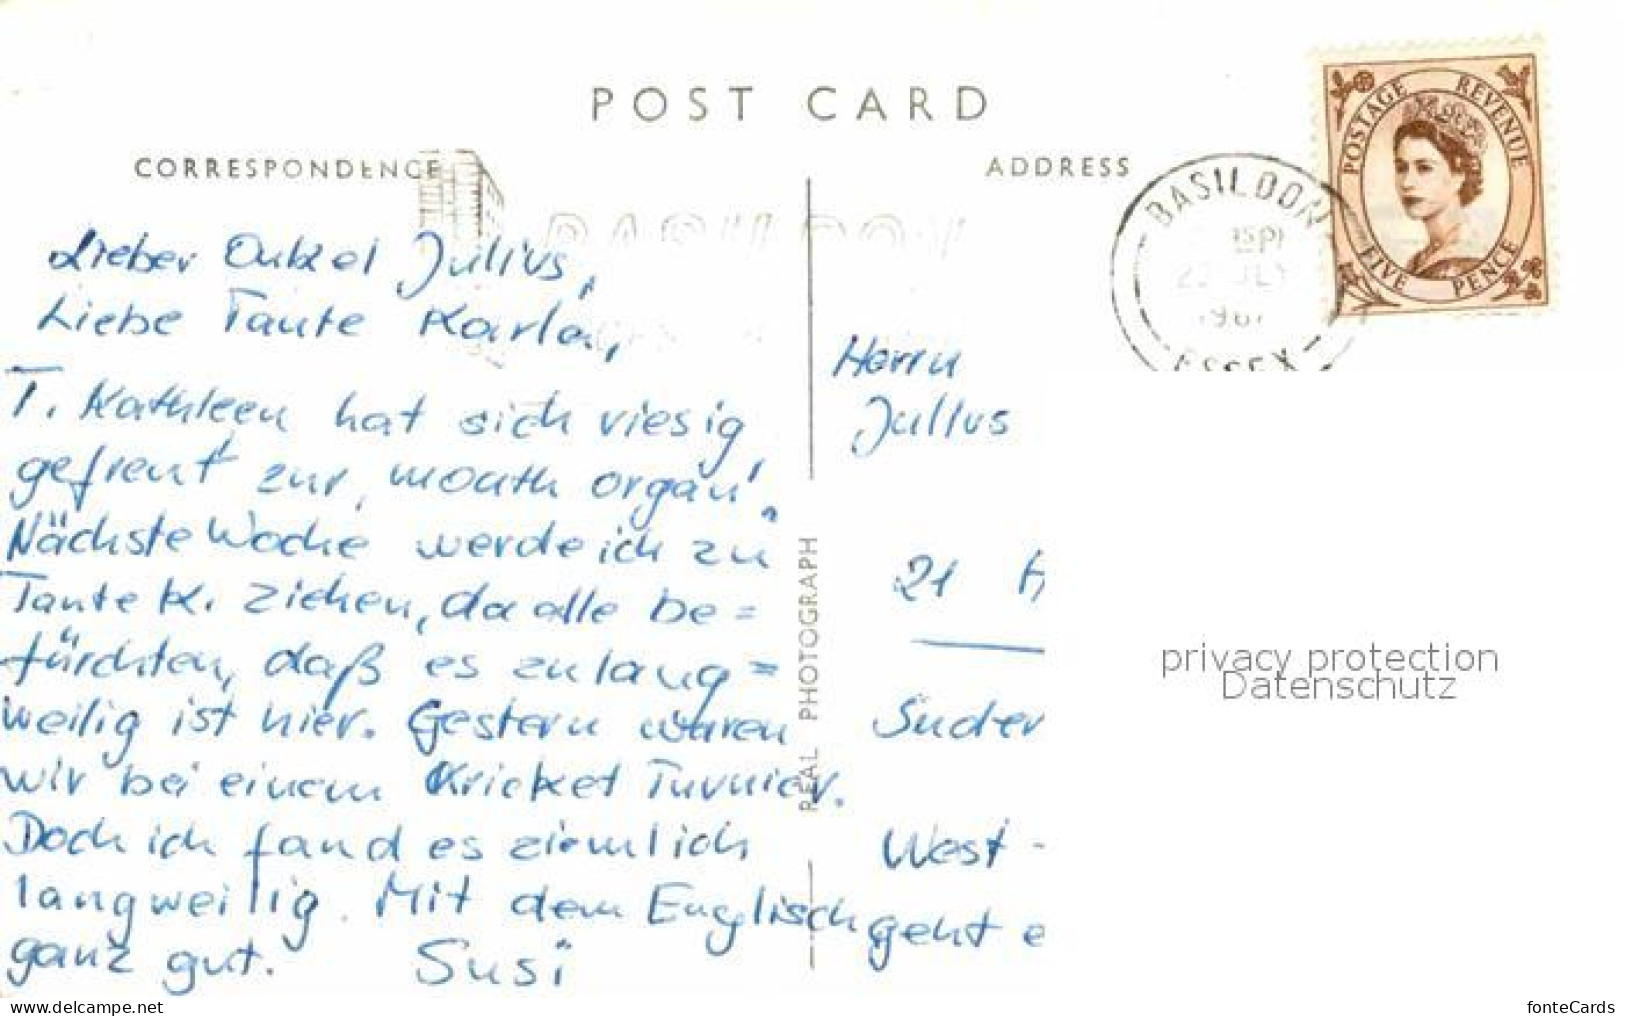 POST CARD
CORRESPONDENCE
ADDRESS
POSTAGE REVENUE
FIVE PENCE
BASILDON
ESSEX
BASILDON
Lieber Onkel Julius,
Liebe Tante Karla,
T. Kathleen hat sich riesig
gefreut zur "mouth organ".
Nächste Woche werde ich zu
Tante K. ziehen, da alle be=
fürchten, daß es zu lang=
weilig ist hier. Gestern waren
wir bei einem Kricket Turnier.
Doch ich fand es ziemlich
langweilig. Mit dem Englisch geht e
ganz gut. Susi
REAL PHOTOGRAPH
Herrn
Julius
21 H
Suder
West-
privacy protection
Datenschutz
www.delcampe.net
fonteCards